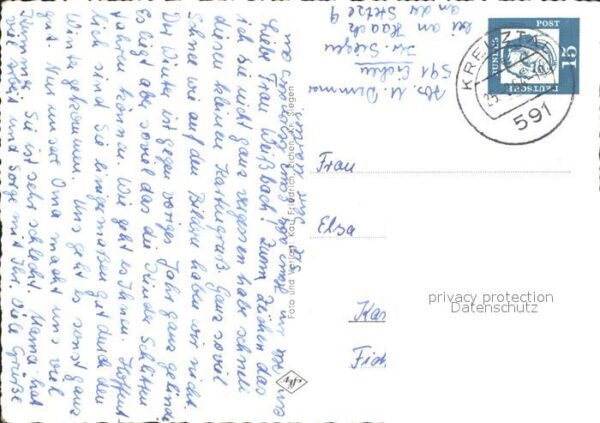 Liebe Frau Weißbach! Zum Zeichen das
ich Sie nicht ganz vergessen habe schnell
diesen kleinen Kartengruß. Ganz soviel
Schnee wie auf dem Bilde haben wir nicht.
Der Winter ist gegen voriges Jahr ganz gelinde
Es liegt aber soviel das die Kinder Schlitten
fahren können. Wie geht es Ihnen. Hoffent
lich sind Sie einigermaßen gut durch den
Winter gekommen. Uns geht es sonst ganz
gut. Nur unsre Oma macht uns viel
Kummer. Sie ist sehr schlecht. Mama hat
viel Arbeit und Sorge mit Ihr. Viele Grüße
Foto und Verlag: Karl Friedrich, Eichen, Krs. Siegen
Abs. U.
591 Eichen
Kr. Siegen
bei
an der
DEUTSCHE BUNDESPOST
15
KREUZTAL
591
Frau
Elsa
Kar
Fich
privacy protection
Datenschutz